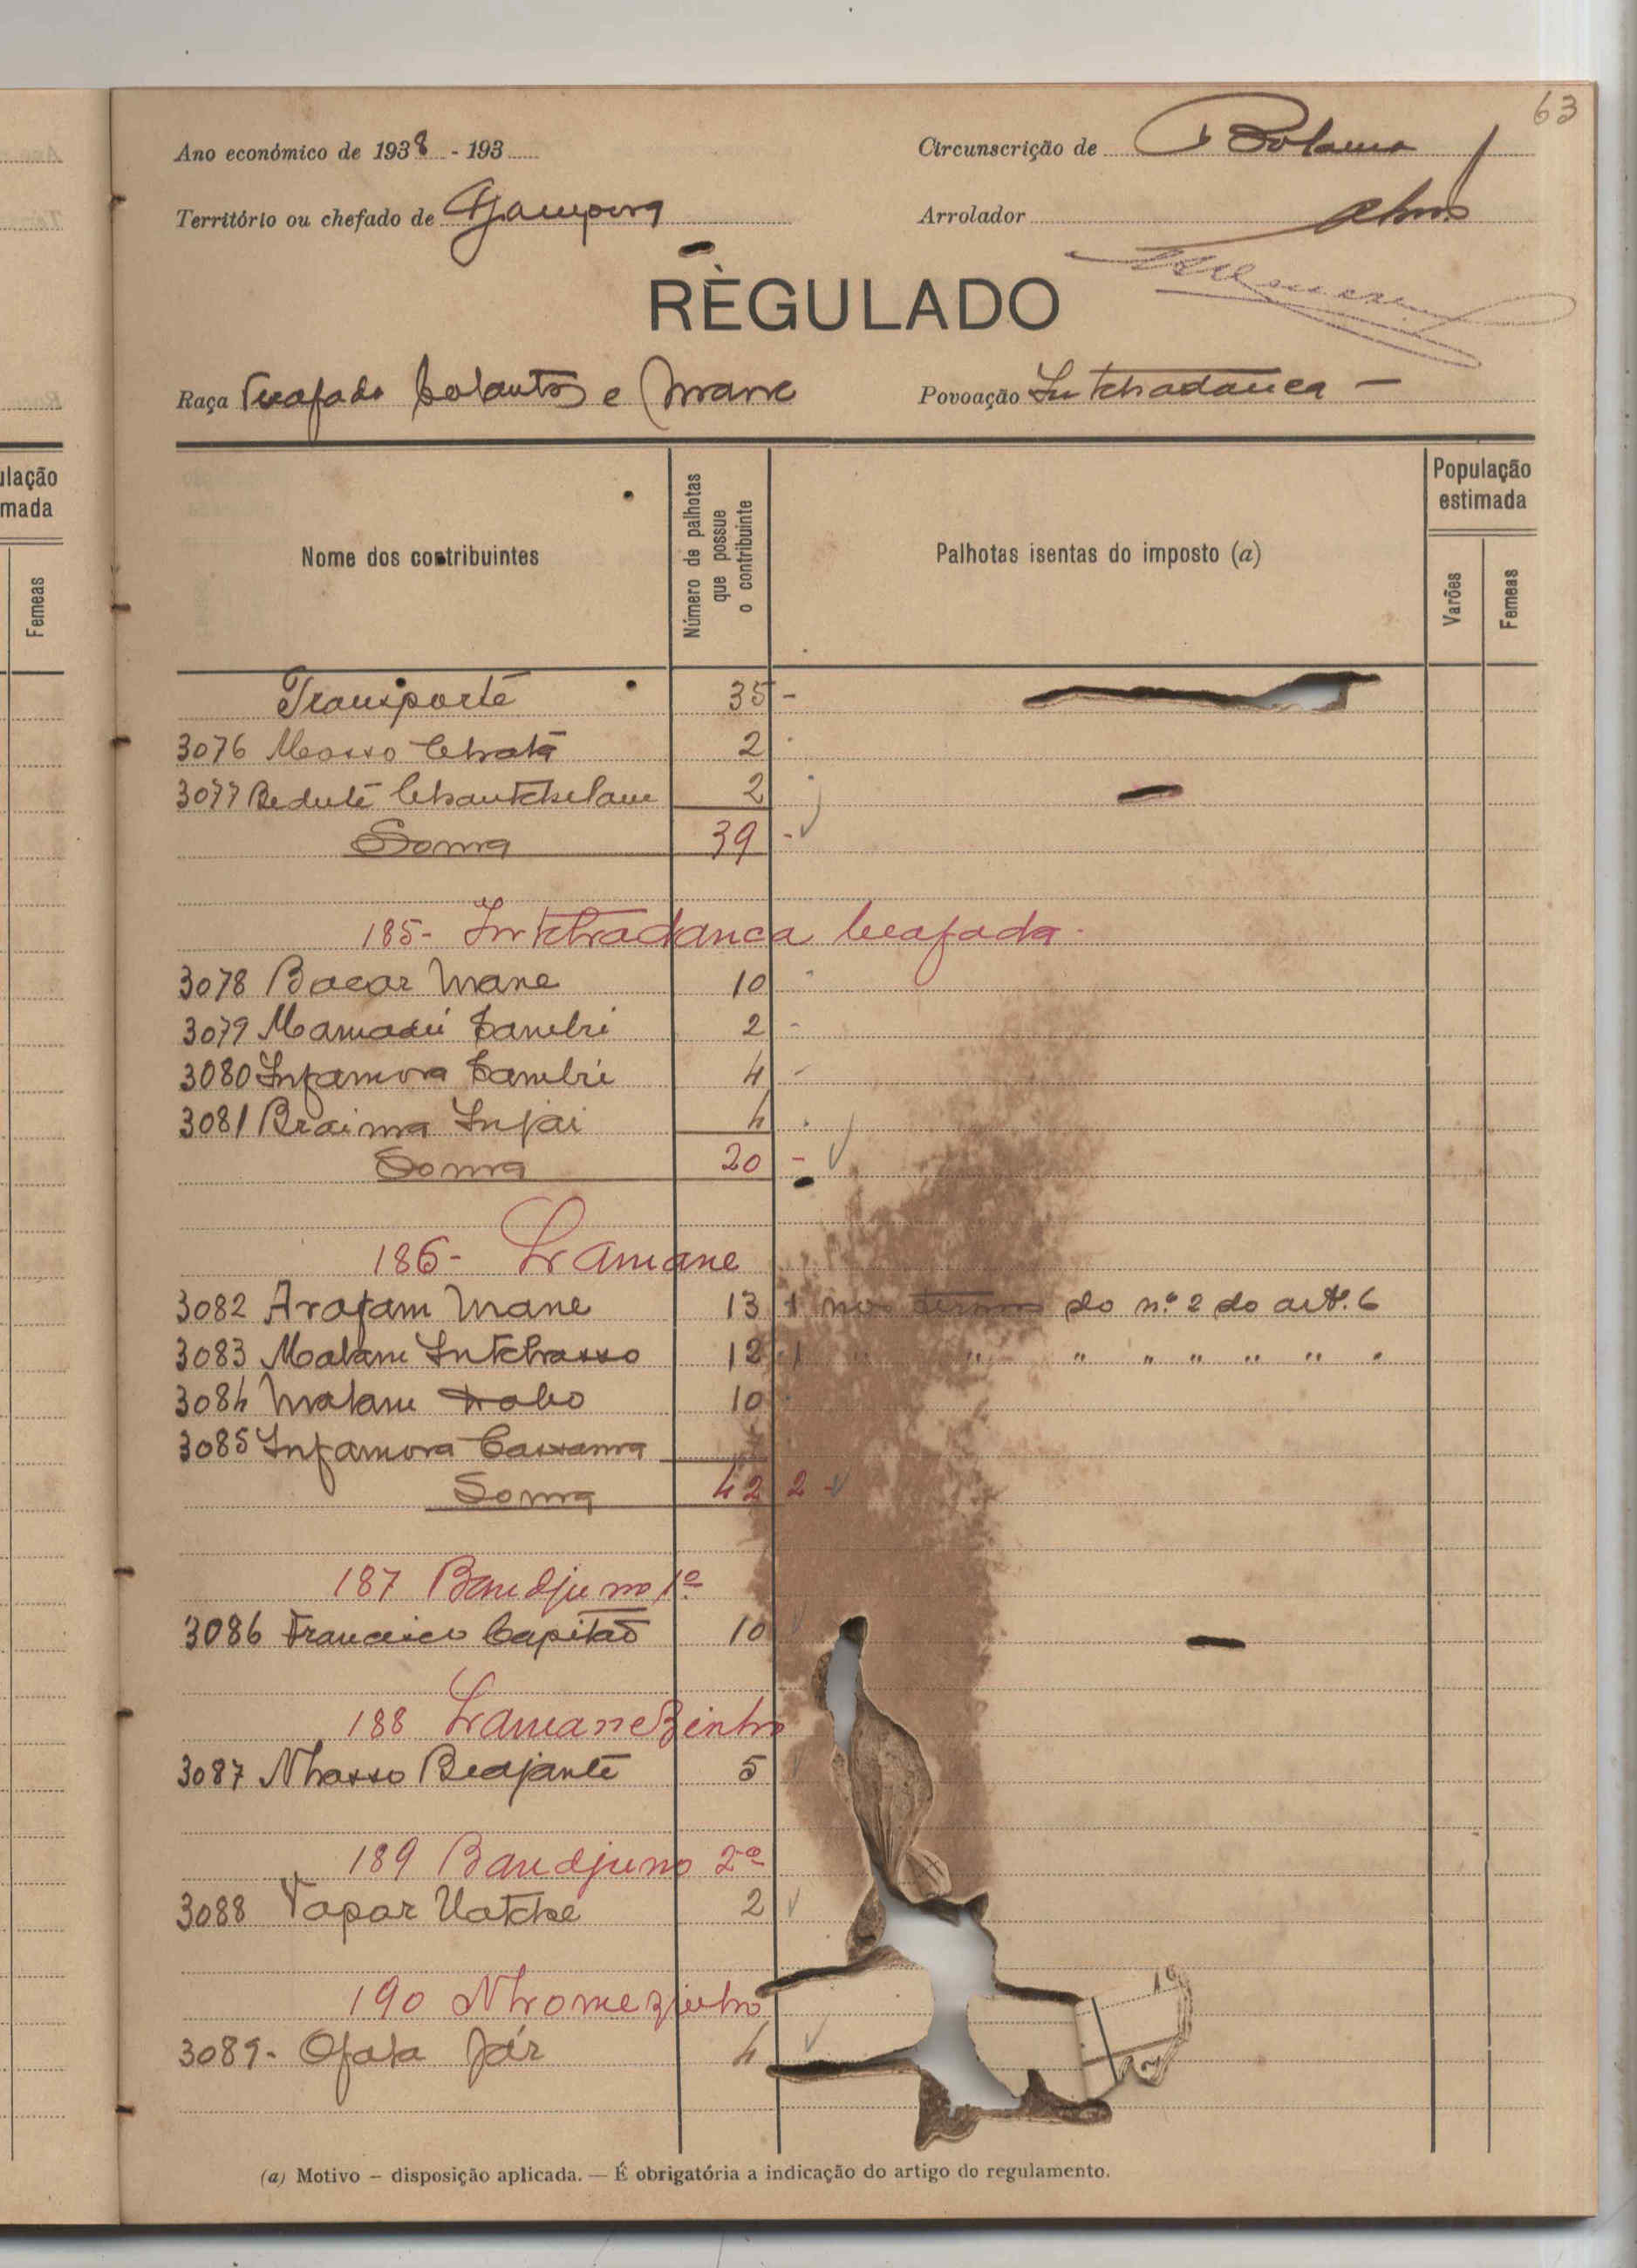 63
Ano económico de 1938 - 193
Circunscrição de Bolama
Território ou chefado de Gampará
Arrolador
REGULADO
Raça Beafada balantas e Mané
Povoação Intchadanca -
ulação
mada
Femeas
Nome dos contribuintes
Número de palhotas
que possue
o contribuinte
Palhotas isentas do imposto (a)
População
estimada
Varões
Femeas
Transporte 35 -
3076 Mosso Chatá 2
3077 Beduté 2
Soma 39 -
185- Intchadanca beafada -
3078 Bacar Mané 10
3079 Mamadú Sambú 2 -
3080 Infamora Sambú 4 -
3081 Braima Injai 4
Soma 20 -
186- Lamane
3082 Arafam Mané 13 1 nos termos do n.º 2 do art. 6
3083 Malam Intchasso 12 1 " " " " " " "
3084 Malam Dabo 10
3085 Infamora Cassama
Soma 42 2 -
187 Bandjuno 1º
3086 Francisco Capitão 10
188 Lamanezinho
3087 Nhasso Beajanté 5
189 Bandjuno 2º
3088 Tapar Uatche 2
190 Nhomezinho
3089- Ofala Jár 4
(a) Motivo – disposição aplicada. — É obrigatória a indicação do artigo do regulamento.